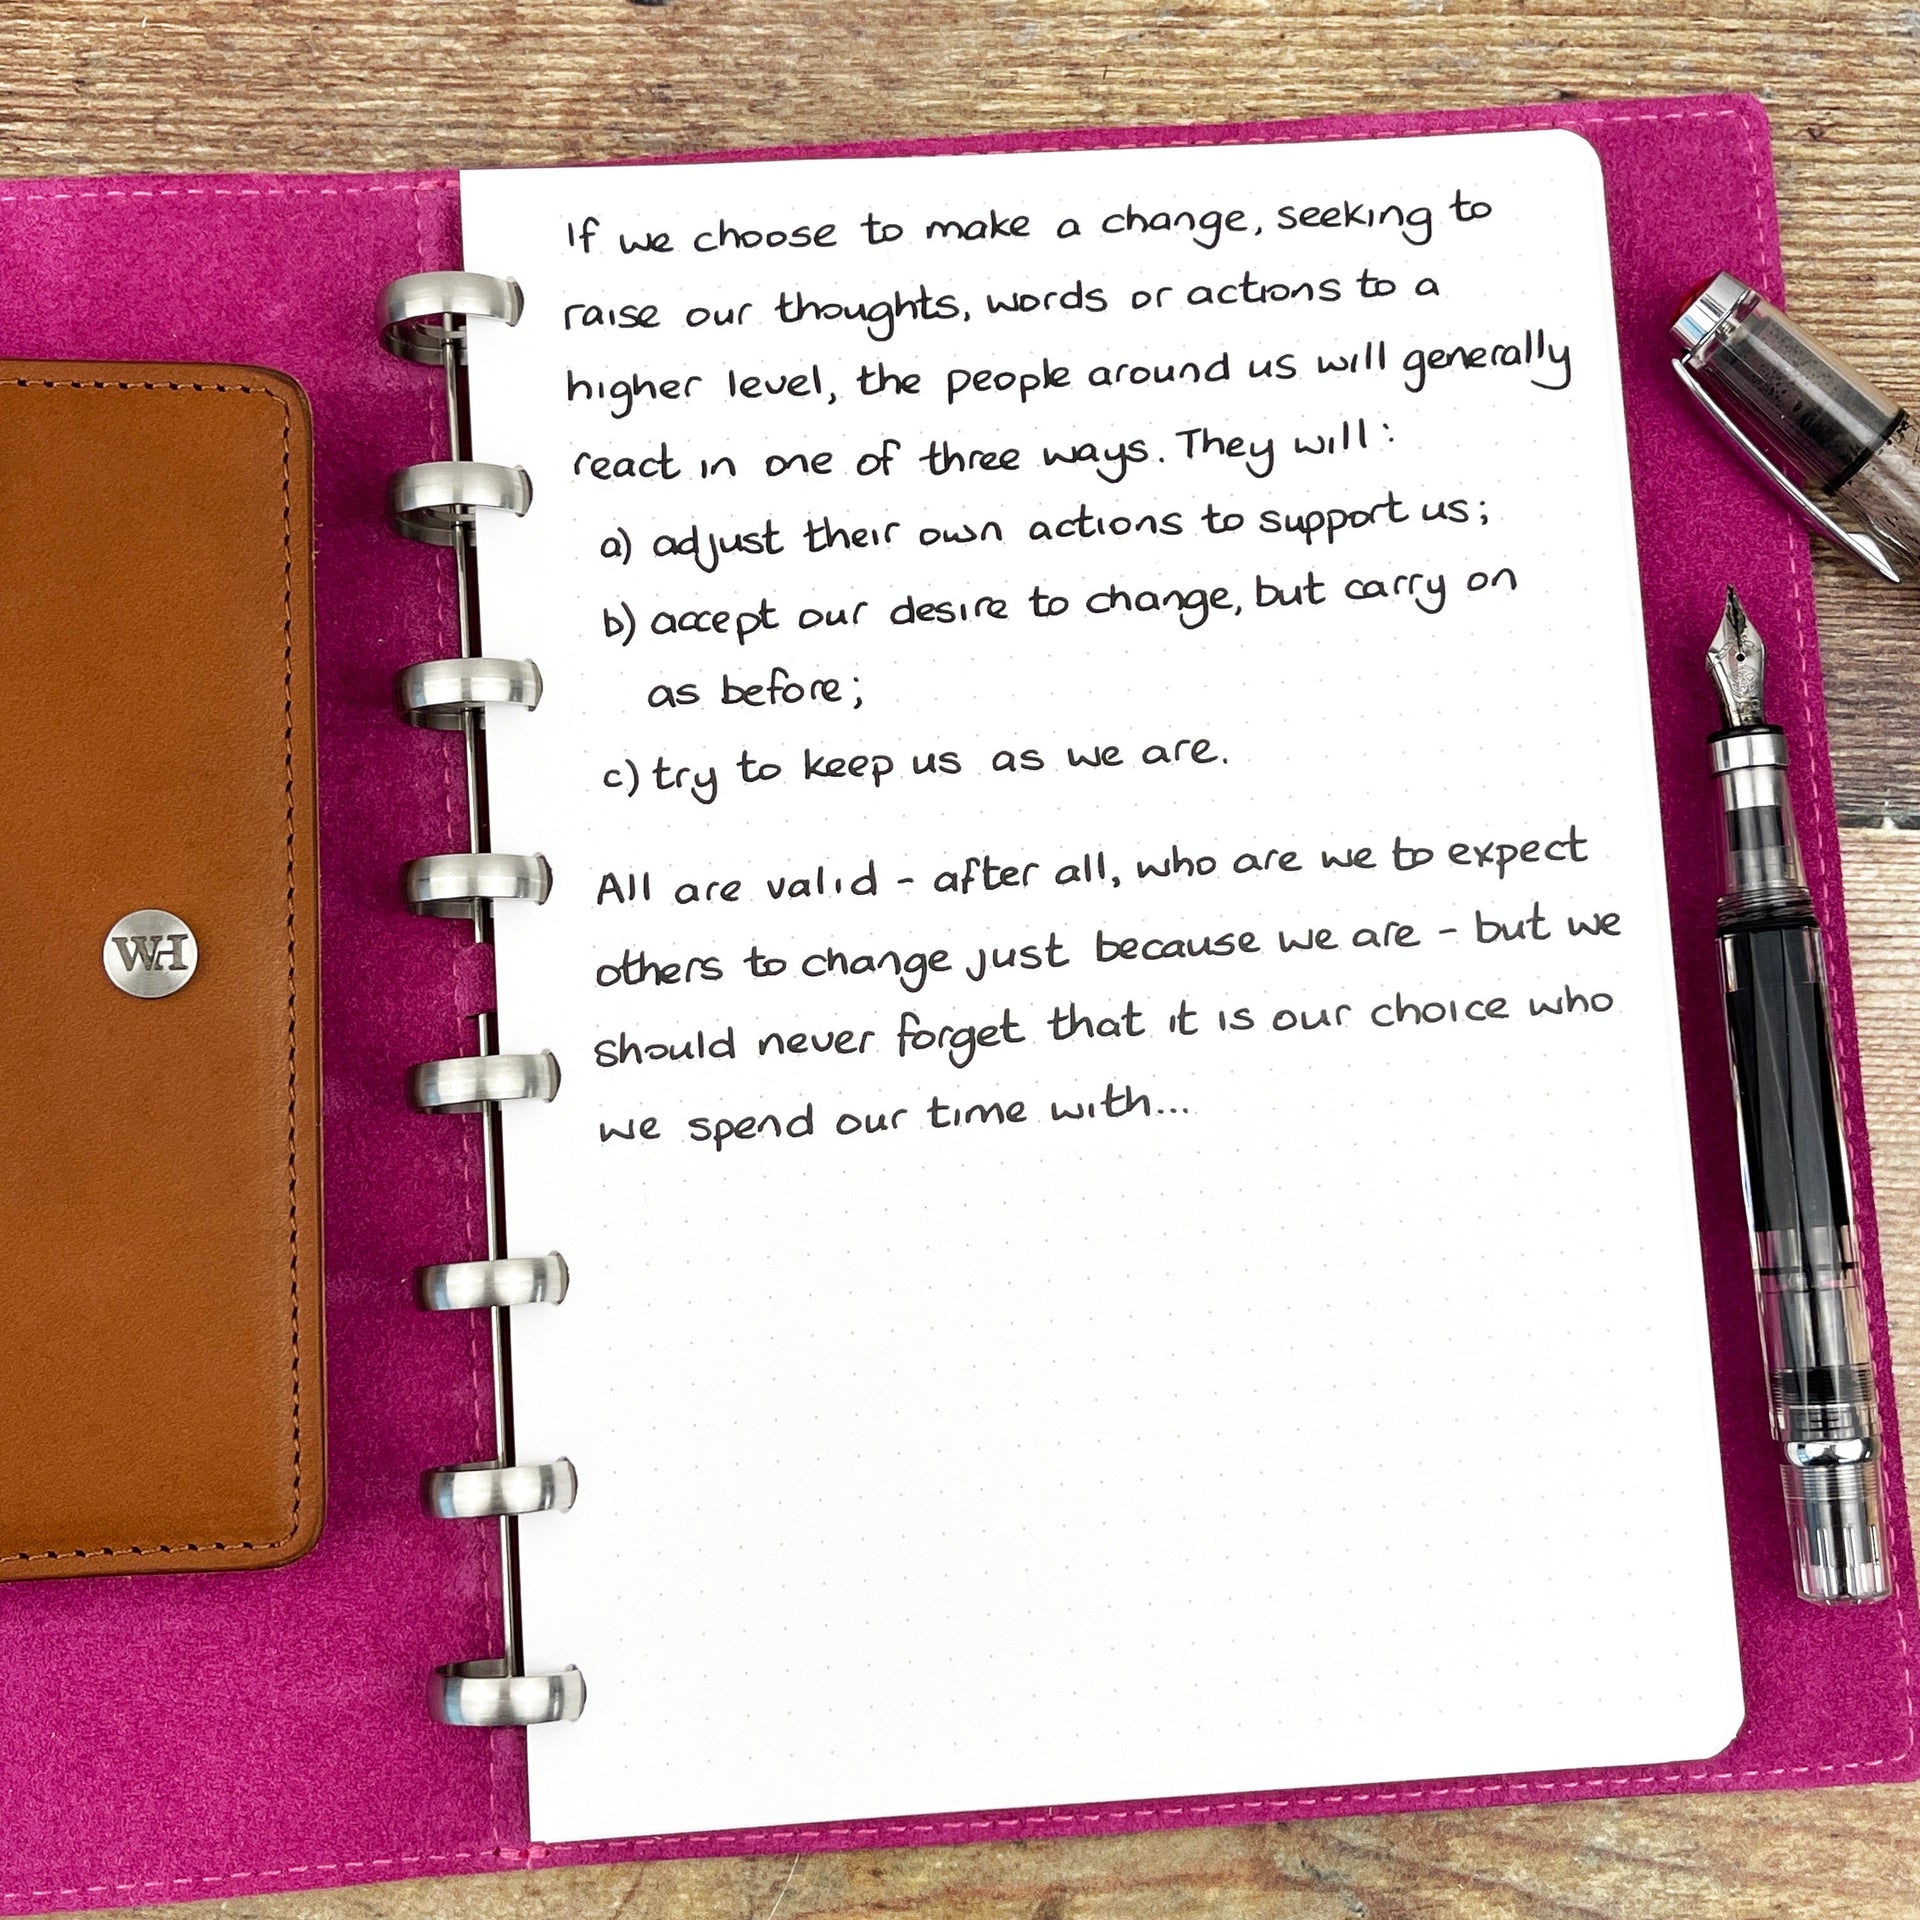 If we choose to make a change, seeking to
raise our thoughts, words or actions to a
higher level, the people around us will generally
react in one of three ways. They will:
a) adjust their own actions to support us;
b) accept our desire to change, but carry on
as before;
c) try to keep us as we are.
All are valid - after all, who are we to expect
others to change just because we are - but we
should never forget that it is our choice who
we spend our time with...
WH